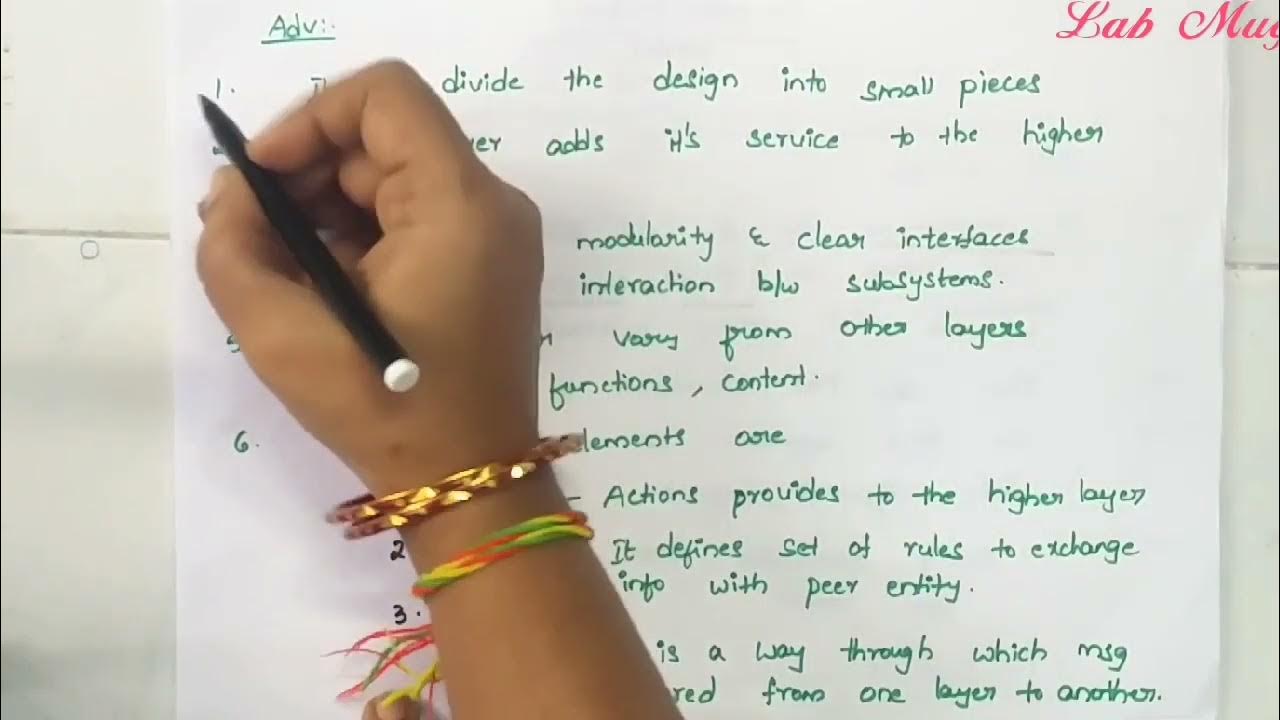 Lab Mug
Adv:-
1. divide the design into small pieces
adds it's service to the higher
modularity & clear interfaces
interaction b/w subsystems.
vary from other layers
functions, content.
6. are
- Actions provides to the higher layer
2 It defines set of rules to exchange
info with peer entity.
3.
is a way through which msg
from one layer to another.